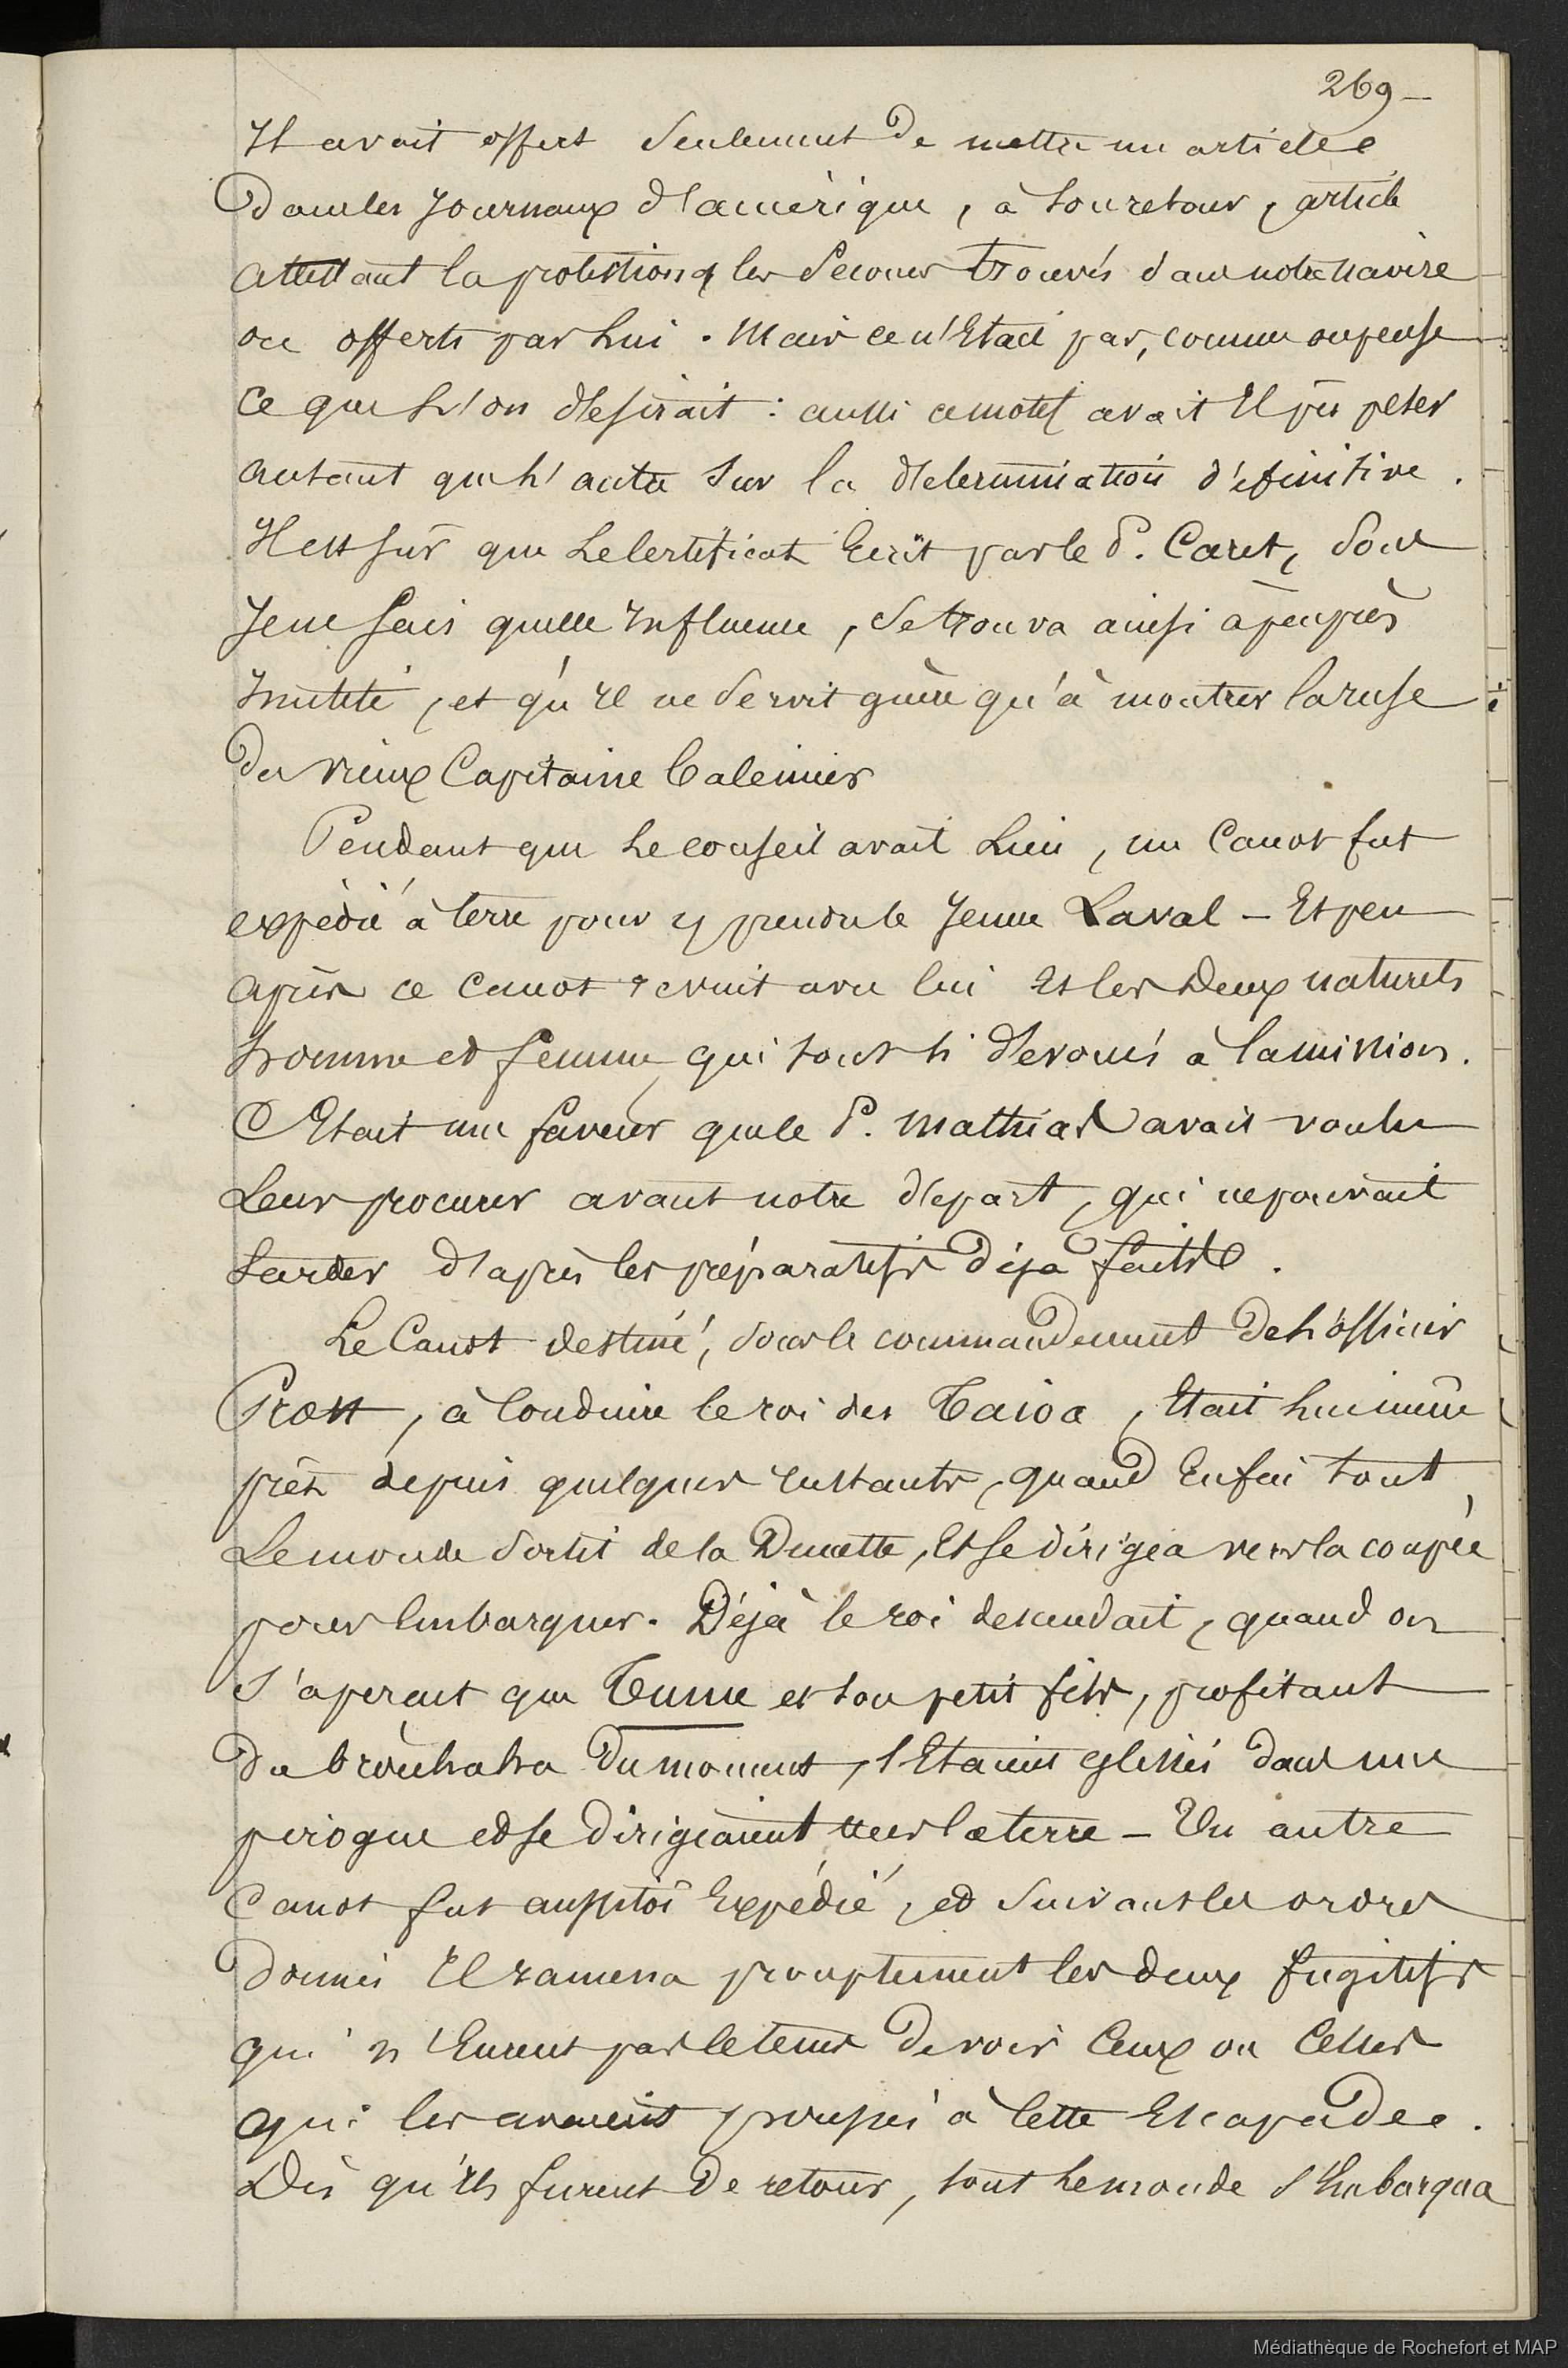 269 –
Il avait offert seulement de mettre un article
dans les journaux d'amérique, à son retour, article
attestant la protection & les secours trouvés dans notre navire
ou offerts par lui. Mais ce n'était pas, comme on pense
ce que l'on désirait : aussi ce motif avait il pu peser
autant que l'autre sur la détermination définitive.
Il est sûr que le certificat écrit par le P. Caret, sous
je ne sais quelle influence, se trouva ainsi à peu près
inutile, et qu'il ne servit guère qu'à montrer la ruse
du vieux Capitaine baleinier
Pendant que le conseil avait lieu, un canot fut
expédié à terre pour y prendre le jeune Laval – Et peu
après ce canot revint avec lui et les deux naturels
homme et femme qui sont si dévoués à la mission.
C'était une faveur que le P. Mathias avait voulu
leur procurer avant notre départ, qui ne pouvait
tarder d'après les préparatifs déjà faits.
Le Canot destiné, sous le commandement de l'officier
Prost, à conduire le roi des Taioa, était lui même
prêt depuis quelques instants, quand enfin tout
le monde sortit de la Dunette, et se dirigea vers la coupée
pour embarquer. Déjà le roi descendait, quand on
s'aperçut que Tume et son petit fils, profitant
du brouhaha du moment, s'étaient glissés dans une
pirogue et se dirigeaient vers la terre – Un autre
canot fut aussitôt expédié, et suivant les ordres
donnés il ramena promptement les deux fugitifs
qui n'eurent pas le tems de voir ceux ou celles
qui les avaient poussés à cette escapade.
Dès qu'ils furent de retour, tout le monde s'embarqua
Médiathèque de Rochefort et MAP